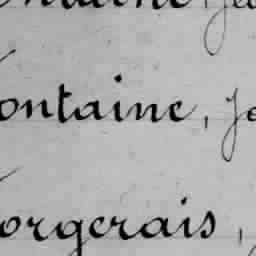 ontaine, Je
orgerais,